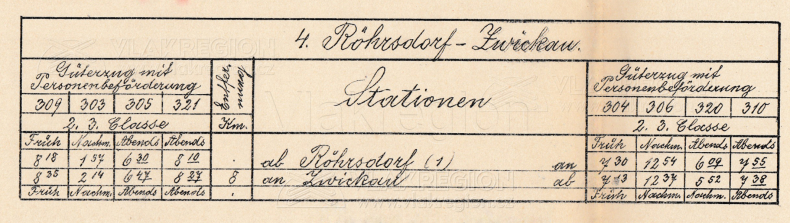 4. Röhrsdorf - Zwickau.
Güterzug mit Personenbeförderung Entfernung Stationen Güterzug mit Personenbeförderung
309 303 305 321 Km. 304 306 320 310
2. 3. Classe 2. 3. Classe
Früh Nachm. Abends Abends Früh Nachm. Abends Abends
8 18 1 57 6 30 8 10 . ab Röhrsdorf (1) an 7 30 12 54 6 09 7 55
8 35 2 14 6 47 8 27 8 an Zwickau ab 7 13 12 37 5 52 7 38
Früh Nachm. Abends Abends . Früh Nachm. Nachm. Abends